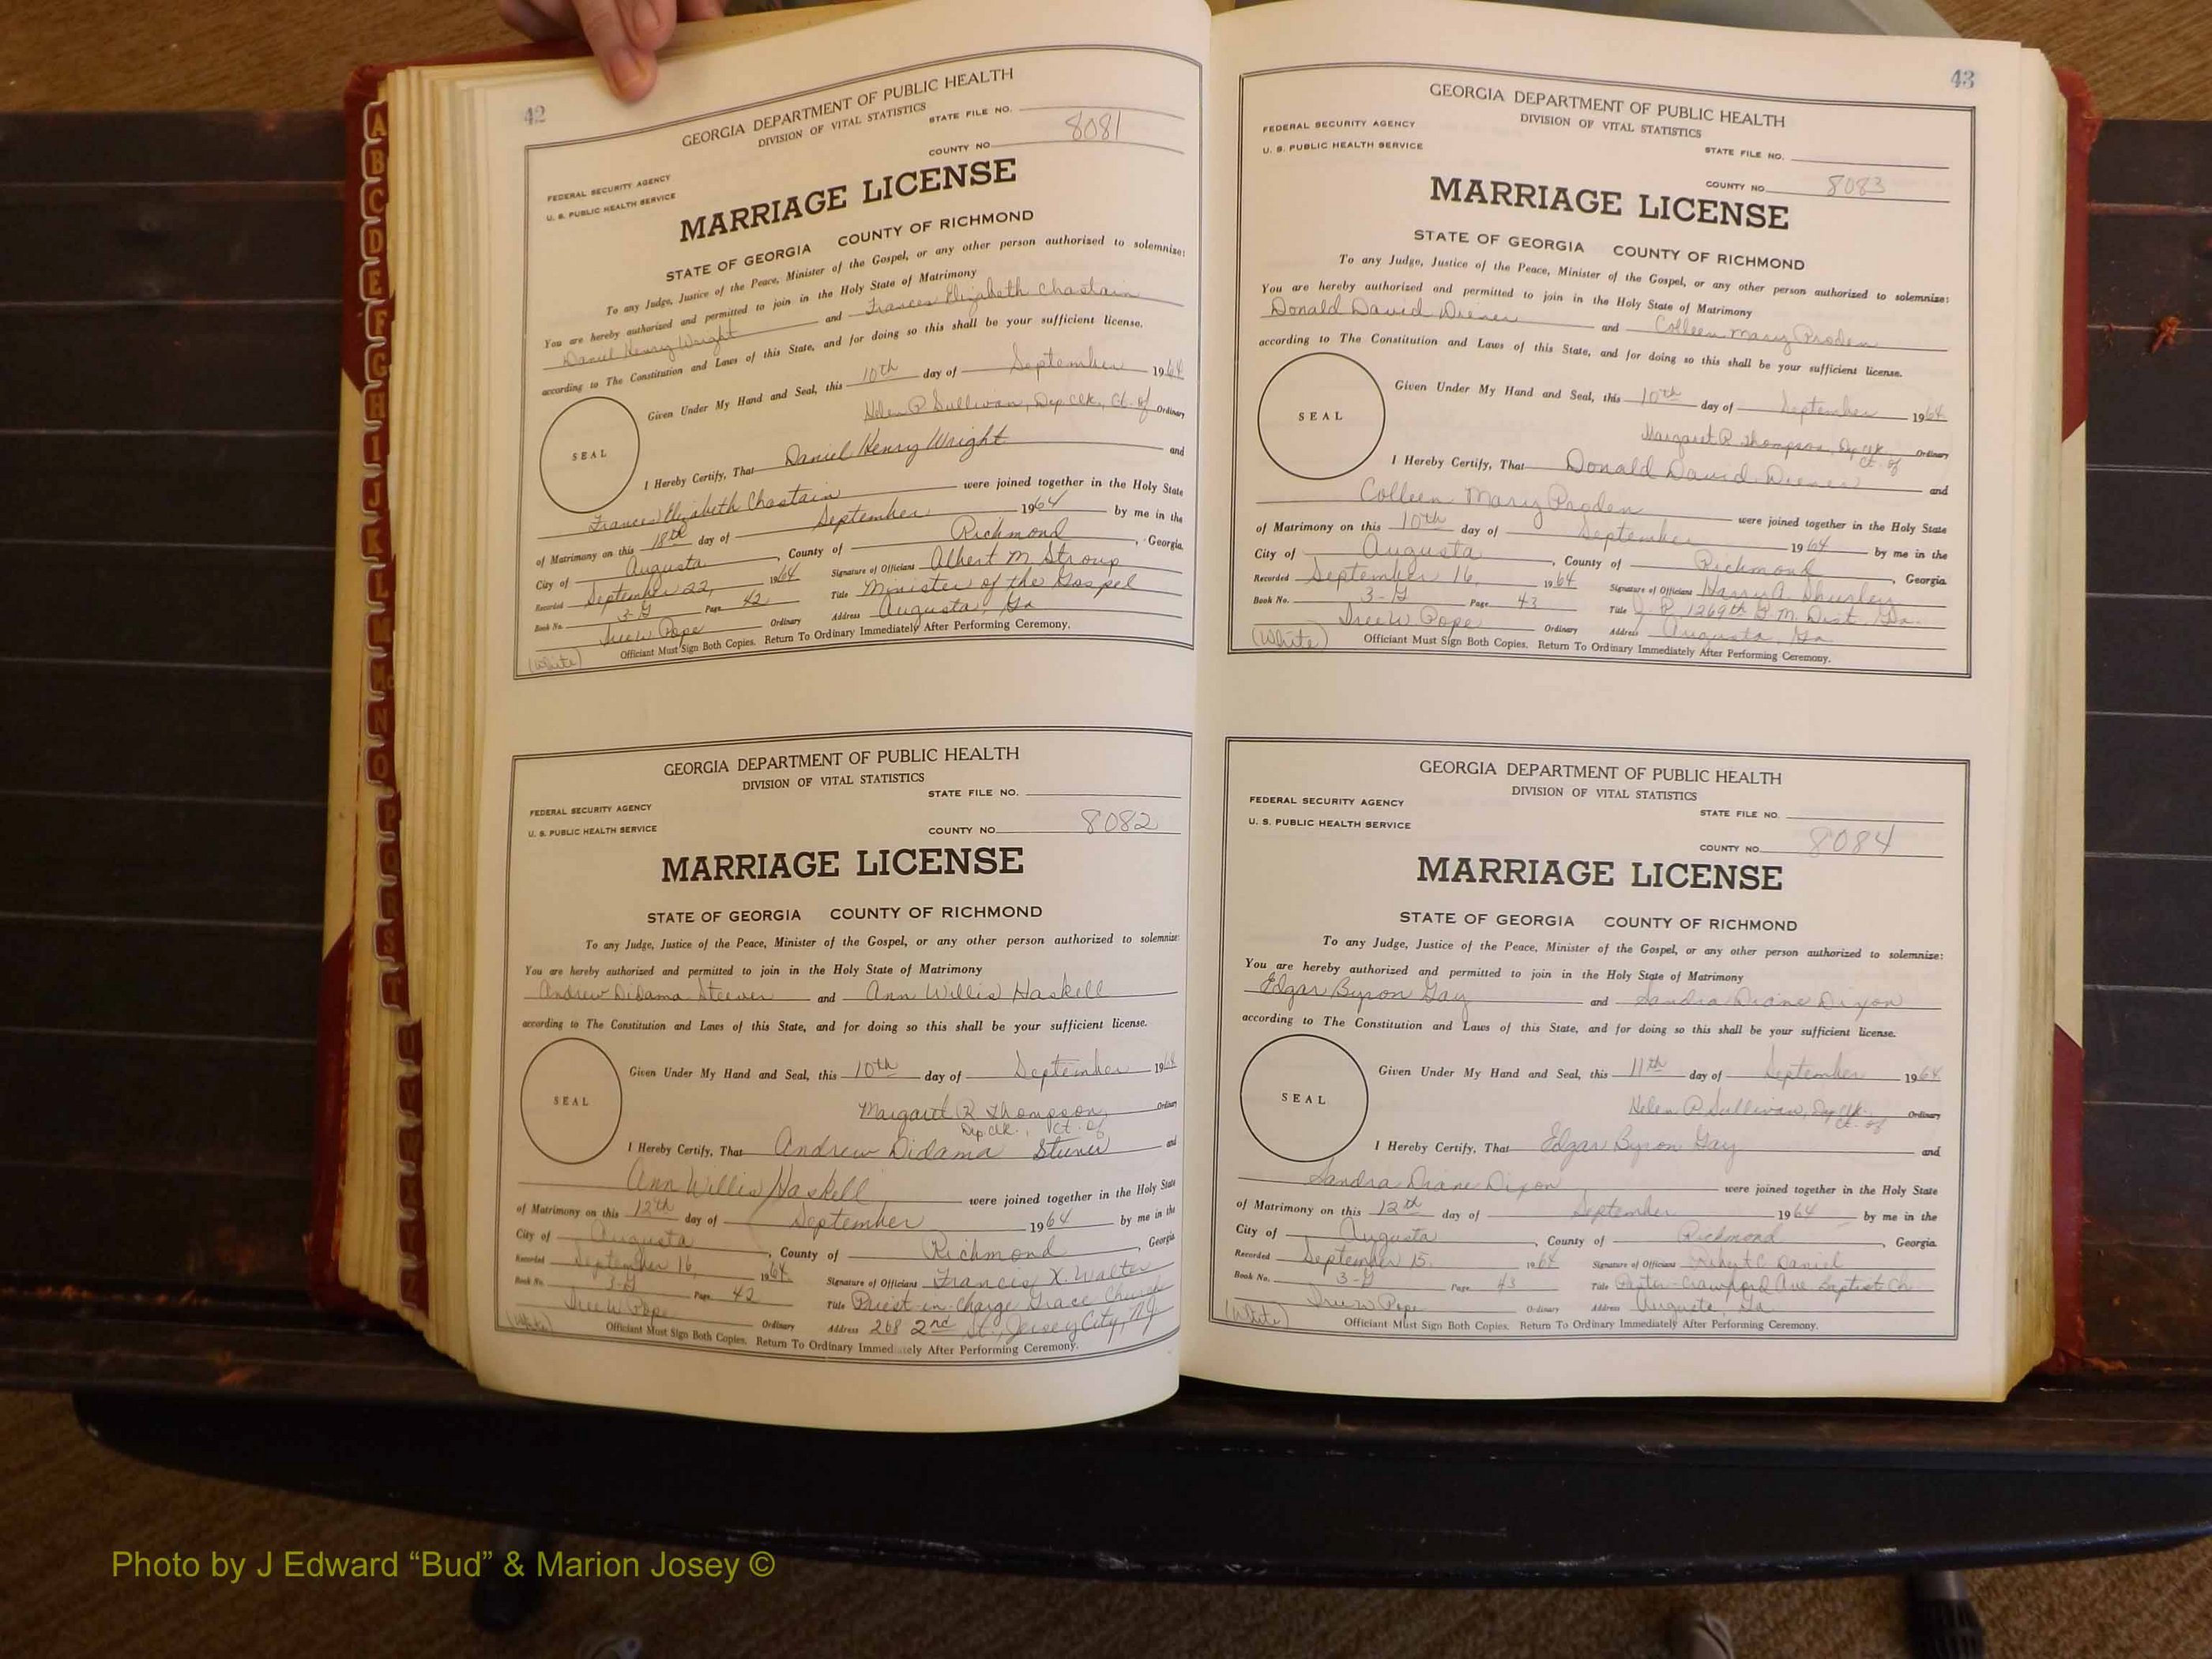 42
GEORGIA DEPARTMENT OF PUBLIC HEALTH
DIVISION OF VITAL STATISTICS
STATE FILE NO.
FEDERAL SECURITY AGENCY
U. S. PUBLIC HEALTH SERVICE
COUNTY NO. 8081
MARRIAGE LICENSE
STATE OF GEORGIA COUNTY OF RICHMOND
To any Judge, Justice of the Peace, Minister of the Gospel, or any other person authorized to solemnize:
You are hereby authorized and permitted to join in the Holy State of Matrimony
Daniel Henry Wright and Frances Elizabeth Chastain
according to The Constitution and Laws of this State, and for doing so this shall be your sufficient license.
Given Under My Hand and Seal, this 10th day of September 1964
Helen P Sullivan, Dep Clk, Ct. of Ordinary
SEAL
I Hereby Certify, That Daniel Henry Wright and
Frances Elizabeth Chastain were joined together in the Holy State
of Matrimony on this 18th day of September 1964 by me in the
City of Augusta, County of Richmond, Georgia.
Recorded September 22, 1964 Signature of Officiant Albert M. Stroup
Book No. 3-G Page 42 Title Minister of the Gospel
Pope Ordinary Address Augusta, Ga
(White) Officiant Must Sign Both Copies. Return To Ordinary Immediately After Performing Ceremony.
GEORGIA DEPARTMENT OF PUBLIC HEALTH
DIVISION OF VITAL STATISTICS
STATE FILE NO.
FEDERAL SECURITY AGENCY
U. S. PUBLIC HEALTH SERVICE
COUNTY NO. 8082
MARRIAGE LICENSE
STATE OF GEORGIA COUNTY OF RICHMOND
To any Judge, Justice of the Peace, Minister of the Gospel, or any other person authorized to solemnize:
You are hereby authorized and permitted to join in the Holy State of Matrimony
Andrew DiDama and Ann Willis Haskell
according to The Constitution and Laws of this State, and for doing so this shall be your sufficient license.
Given Under My Hand and Seal, this 10th day of September 1964
Margaret R Thompson, Ordinary
Dep Clk., Ct. of
SEAL
I Hereby Certify, That Andrew Didama and
Ann Willis Haskell were joined together in the Holy State
of Matrimony on this 12th day of September 1964 by me in the
City of Augusta, County of Richmond, Georgia
Recorded September 16, 1964 Signature of Officiant Francis X. Walter
Book No. 3-G Page 42 Title Priest-in-charge Grace Church
Pope Ordinary Address 268 2nd St., Jersey City, NJ
(White) Officiant Must Sign Both Copies. Return To Ordinary Immediately After Performing Ceremony.
43
GEORGIA DEPARTMENT OF PUBLIC HEALTH
DIVISION OF VITAL STATISTICS
FEDERAL SECURITY AGENCY
U. S. PUBLIC HEALTH SERVICE
STATE FILE NO.
COUNTY NO. 8083
MARRIAGE LICENSE
STATE OF GEORGIA COUNTY OF RICHMOND
To any Judge, Justice of the Peace, Minister of the Gospel, or any other person authorized to solemnize:
You are hereby authorized and permitted to join in the Holy State of Matrimony
Donald David Diener and Colleen Mary Proden
according to The Constitution and Laws of this State, and for doing so this shall be your sufficient license.
Given Under My Hand and Seal, this 10th day of September 1964
Margaret R Thompson, Dep Clk Ordinary
Ct. of
SEAL
I Hereby Certify, That Donald David Diener and
Colleen Mary Proden were joined together in the Holy State
of Matrimony on this 10th day of September 1964 by me in the
City of Augusta, County of Richmond, Georgia
Recorded September 16, 1964 Signature of Officiant Harry A. Shurley
Book No. 3-G Page 43 Title J. P. 1269th G. M. Dist. Ga.
Pope Ordinary Address Augusta, Ga
(White) Officiant Must Sign Both Copies. Return To Ordinary Immediately After Performing Ceremony.
GEORGIA DEPARTMENT OF PUBLIC HEALTH
DIVISION OF VITAL STATISTICS
FEDERAL SECURITY AGENCY
U. S. PUBLIC HEALTH SERVICE
STATE FILE NO.
COUNTY NO. 8084
MARRIAGE LICENSE
STATE OF GEORGIA COUNTY OF RICHMOND
To any Judge, Justice of the Peace, Minister of the Gospel, or any other person authorized to solemnize:
You are hereby authorized and permitted to join in the Holy State of Matrimony
Edgar Byron Gay and Sandra Diane Dixon
according to The Constitution and Laws of this State, and for doing so this shall be your sufficient license.
Given Under My Hand and Seal, this 11th day of September 1964
Helen P Sullivan, Dep Clk. Ordinary
Ct. of
SEAL
I Hereby Certify, That Edgar Byron Gay and
Sandra Diane Dixon were joined together in the Holy State
of Matrimony on this 12th day of September 1964 by me in the
City of Augusta, County of Richmond, Georgia.
Recorded September 15, 1964 Signature of Officiant Robert C Daniel
Book No. 3-G Page 43 Title Pastor-Crawford Ave Baptist Ch
Pope Ordinary Address Augusta, Ga
(White) Officiant Must Sign Both Copies. Return To Ordinary Immediately After Performing Ceremony.
Photo by J Edward “Bud” & Marion Josey ©